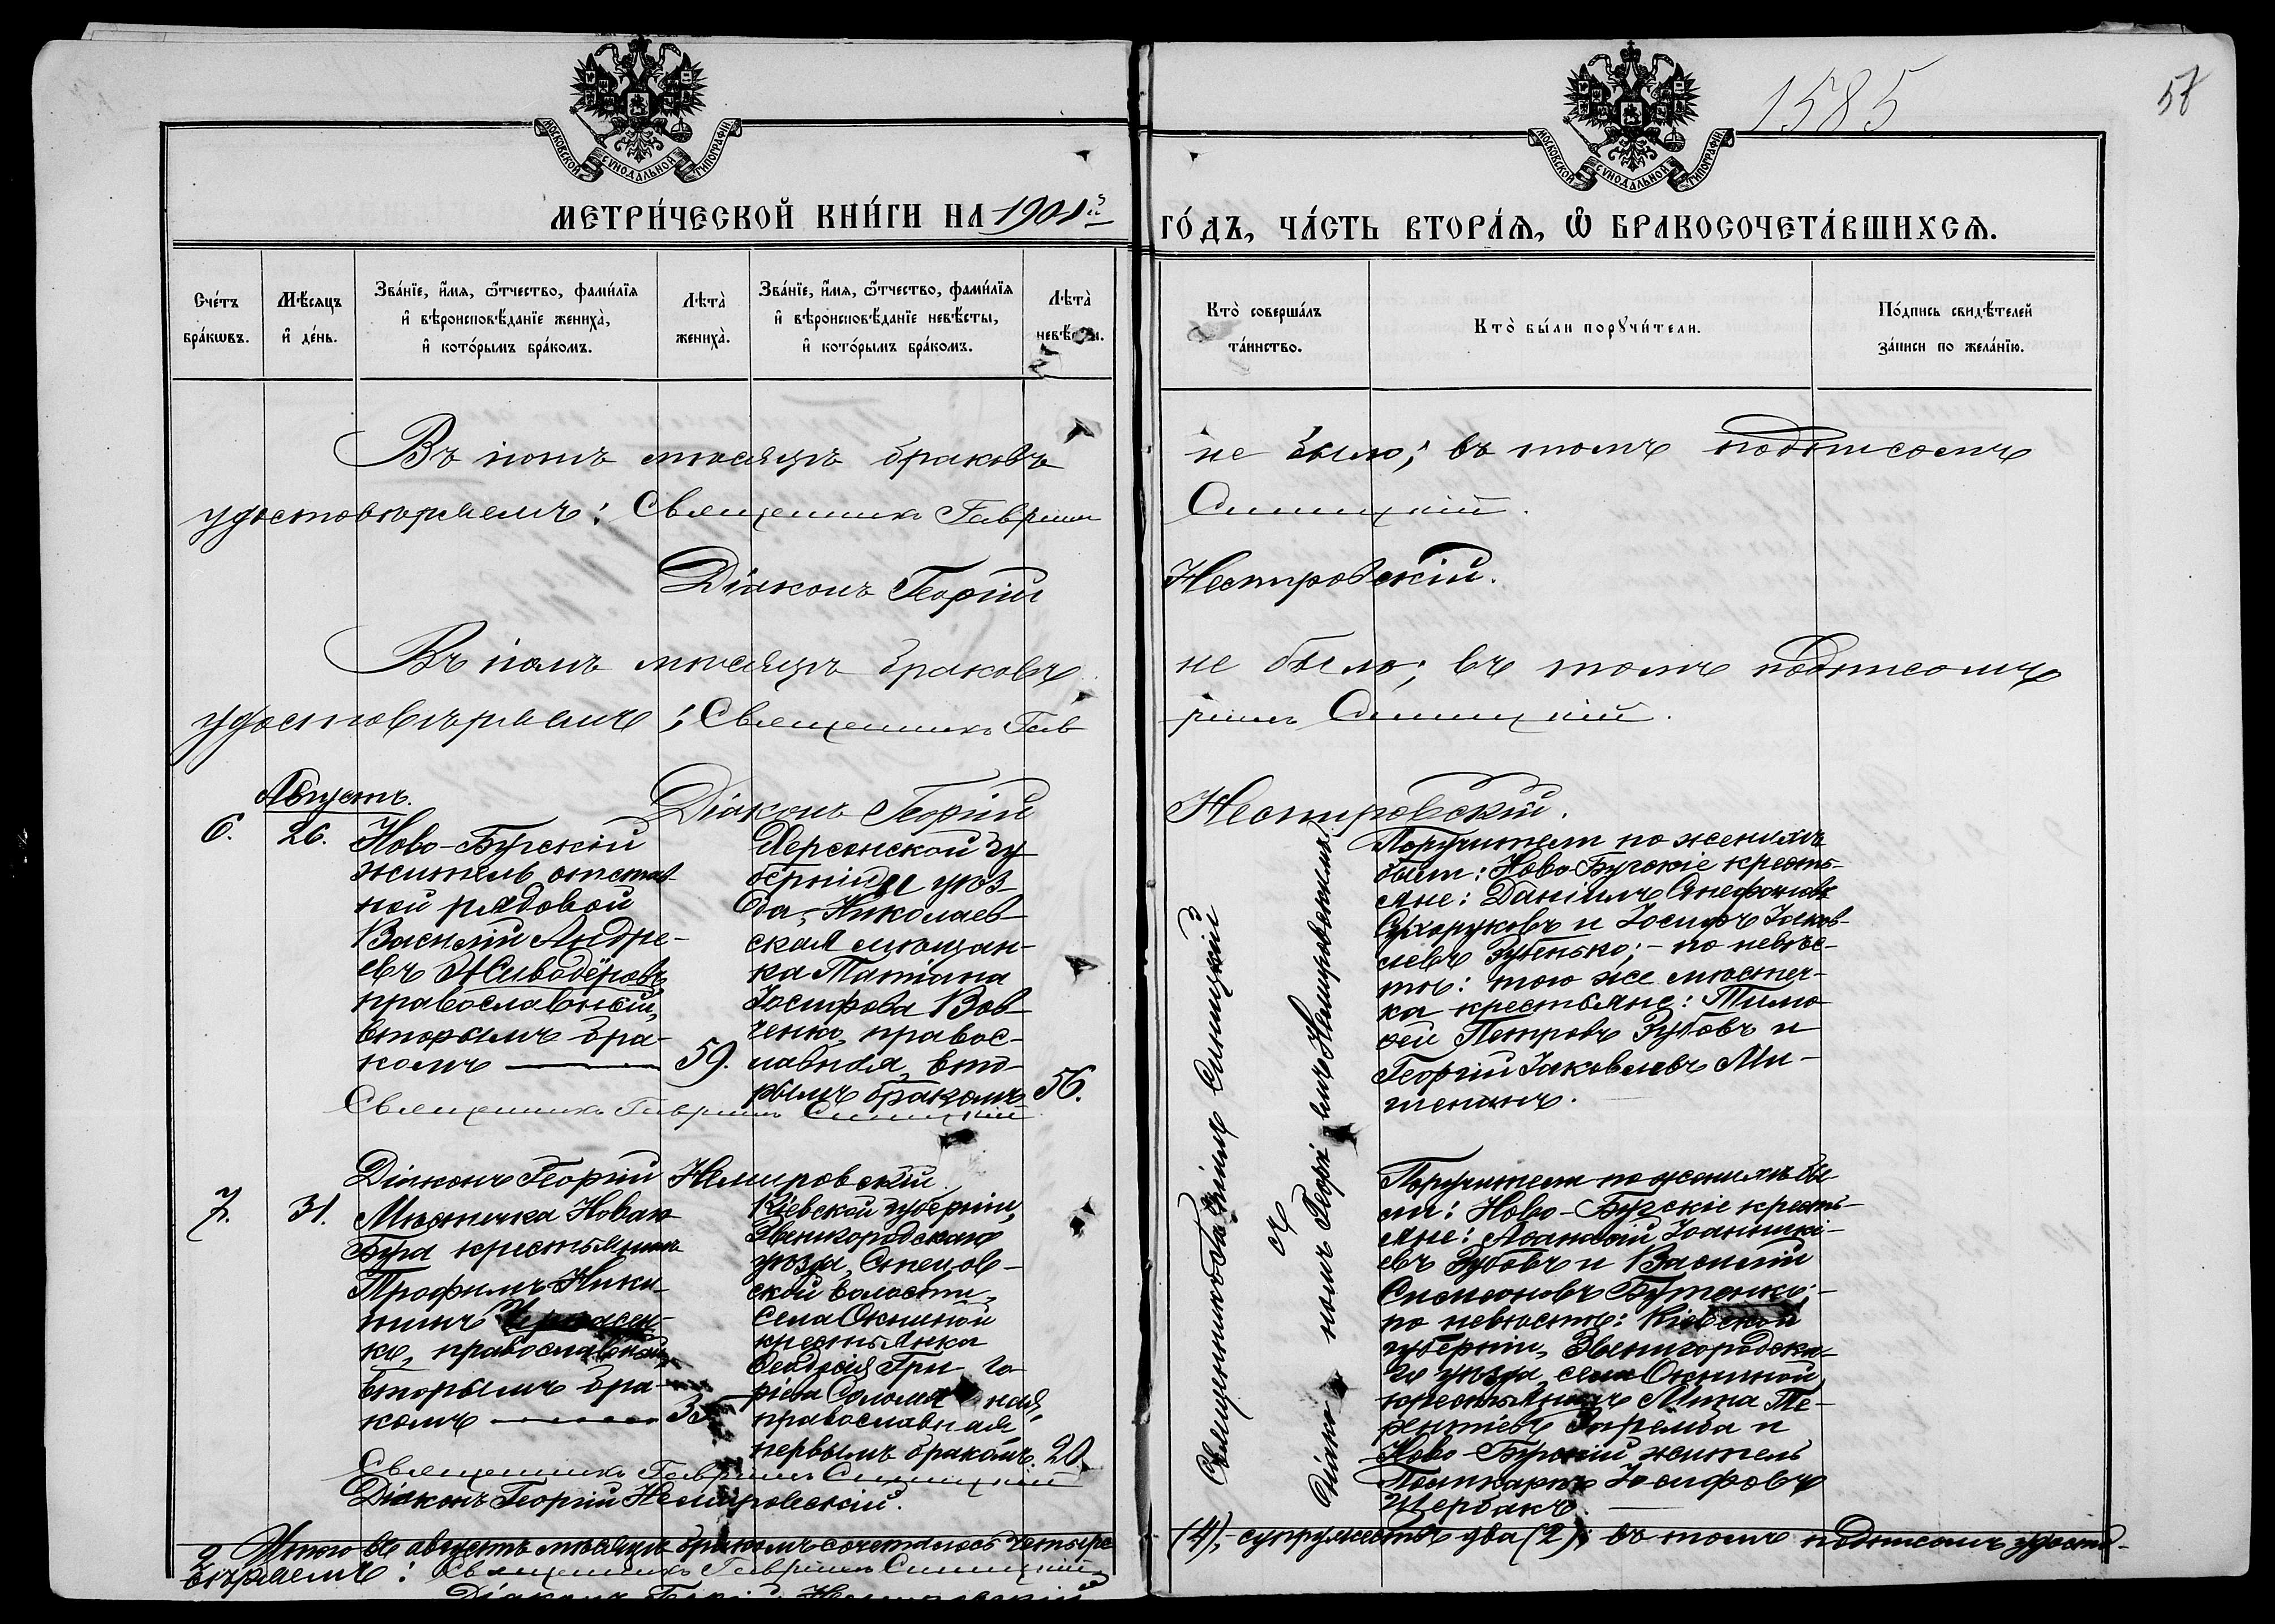 1585
57
МОСКОВСКОЙ СѴНОДАЛЬНОЙ ТИПОГРАФІИ
МОСКОВСКОЙ СѴНОДАЛЬНОЙ ТИПОГРАФІИ
МЕТРИ́ЧЕСКОЙ КНИ́ГИ НА 1901й
ГО́ДЪ, ЧА́СТЬ ВТОРА́Я, Ѽ БРАКОСОЧЕТА́ВШИХСЯ.
Сче́тъ бра́кѡвъ.
Мѣ́сяцъ и҆ де́нь.
Зва́нїе, и҆́мя, ѻ҆́тчество, фами́лїя
и҆ вѣроисповѣ́данїе жениха̀,
и҆ кото́рымъ бра́комъ.
Лѣта̀ жениха̀.
Зва́нїе, и҆́мя, ѻ҆́тчество, фами́лїя
и҆ вѣроисповѣ́данїе невѣ́сты,
и҆ кото́рымъ бра́комъ.
Лѣта̀ невѣ́сты.
Кто̀ соверша́лъ та́инство.
Кто̀ бы́ли порꙋчи́тели.
По́дпись свидѣ́телей за́писи по жела́нїю.
Въ іюнѣ мѣсяцѣ браковъ не было; въ томъ подписомъ
удостовѣряемъ: Священникъ Гавріилъ Синицкій.
Діаконъ Георгій Немировскій.
Въ іюлѣ мѣсяцѣ браковъ не было; въ томъ подписомъ
удостовѣряемъ; Священникъ Гавріилъ Синицкій.
Діаконъ Георгій Немировскій.
Августъ.
6.
26.
Ново-Бугскій
житель отстав
ной рядовой
Василій Андре-
евъ Живодёровъ
православный,
вторымъ бра-
комъ
59.
Херсонской гу
берніи и уѣз
да, Николаев-
ская мѣщан-
ка Татіана
Іосифова Вов-
ченко, правос-
лавная, вто-
рымъ бракомъ
56.
Священникъ Гавріилъ Синицкій
Діаконъ Георгій Немировскій.
Поручители по женихѣ
были: Ново-Бугскіе кресть-
яне: Даніилъ Стефановъ
Сухоруковъ и Іосифъ Іаков-
левъ Зубенько; - по невѣс-
тѣ: того же мѣстеч-
ка крестьяне: Тимо
ѳей Петровъ Зубовъ и
Георгій Іаковлевъ Ми-
Священникъ Гавріилъ Синицкій
съ
Діакономъ Георгіемъ Немировскимъ
7.
31.
Мѣстечка Новаго
Буга крестьянинъ
Трофимъ Ники-
тинъ
ко, православный
вторымъ бра-
комъ
35.
Кіевской губерніи,
Звенигородскаго
уѣзда,
ской волости,
села Окниной
крестьянка
Ѳеодосія Гри го
ріева
православная
первымъ бракомъ.
20.
Священникъ Гавріилъ Синицкій
Діаконъ Георгій Немировскій.
Поручители по женихѣ бы-
ли: Ново-Бугскіе кресть-
яне: Аѳанасій Іоанникі-
евъ Зубовъ и Василій
Симеоновъ Бутенко; -
по невѣстѣ: Кіевской
губерніи, Звенигородска-
го уѣзда, села Окниной
крестьянинъ Мина Те-
рентіевъ Заремба и
Ново-Бугскій житель
Поликарпъ Іосифовъ
Щербакъ.
2
Итого въ августѣ мѣсяцѣ бракомъ сочеталось четыре (4), супружествъ два (2); въ томъ подписомъ удосто-
вѣряемъ: Священникъ Гавріилъ Синицкій
Діаконъ Георгій Немировскій